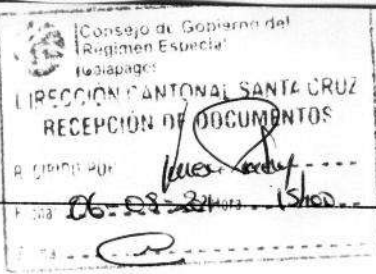 Consejo de Gobierno del
Régimen Especial
Galápagos
DIRECCIÓN CANTONAL SANTA CRUZ
RECEPCIÓN DE DOCUMENTOS
RECIBIDO POR
Fecha 06-08-24 Hora 15h00